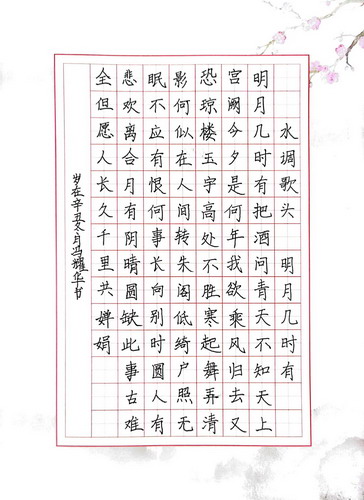 水调歌头 明月几时有
明月几时有把酒问青天不知天上
宫阙今夕是何年我欲乘风归去又
恐琼楼玉宇高处不胜寒起舞弄清
影何似在人间转朱阁低绮户照无
眠不应有恨何事长向别时圆人有
悲欢离合月有阴晴圆缺此事古难
全但愿人长久千里共婵娟
岁在辛丑冬月冯耀华书